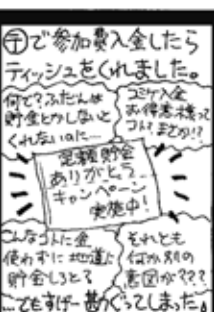 〒で参加費入金したら
ティッシュをくれました。
何で?ふだんは
貯金とかしないと
くれないのに…
コミケ入金
お得意様って
コト?まさか!?
定額貯金
ありがとう
キャンペーン
実施中!
こんなコトに金
使わずに地道に
貯金しろと?
それとも
何か別の
意図が???
…でもすげー勘ぐってしまった